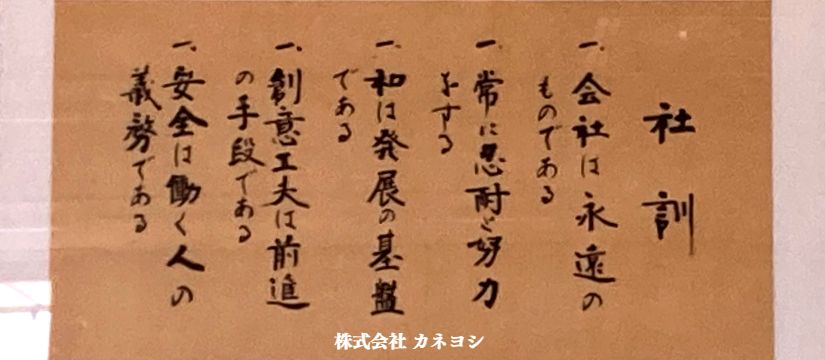 社訓
一、会社は永遠の
ものである
一、常に忍耐と努力
をする
一、和は発展の基盤
である
一、創意工夫は前進
の手段である
一、安全は働く人の
義務である
株式会社 カネヨシ